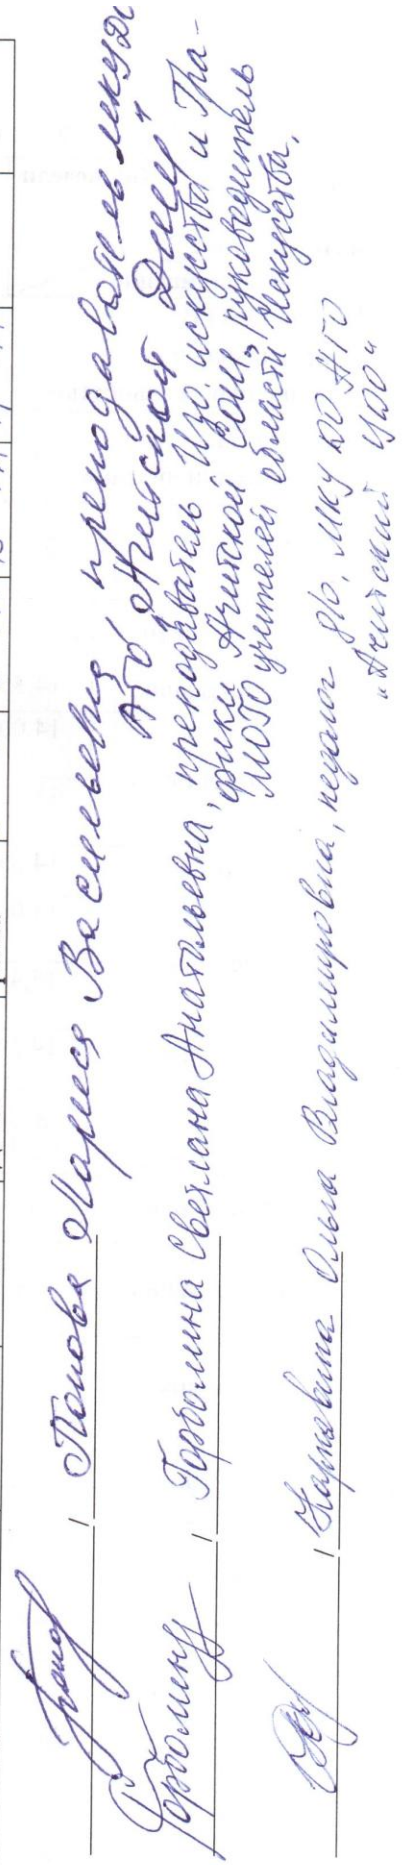 Попов / Попова Лариса Васильевна, преподаватель МКУДО
АГО Ачитской ДШИ"
Горбомину / Горбомина Светлана Анатольевна, преподаватель Изо. искусства и Гра-
фики Ачитской СОШ, руководитель
МОГО учителей области Искусства.
/ Ольга Владимировна, педагог д/о, МКУ ДО АГО
„Ачитский ЦДО"